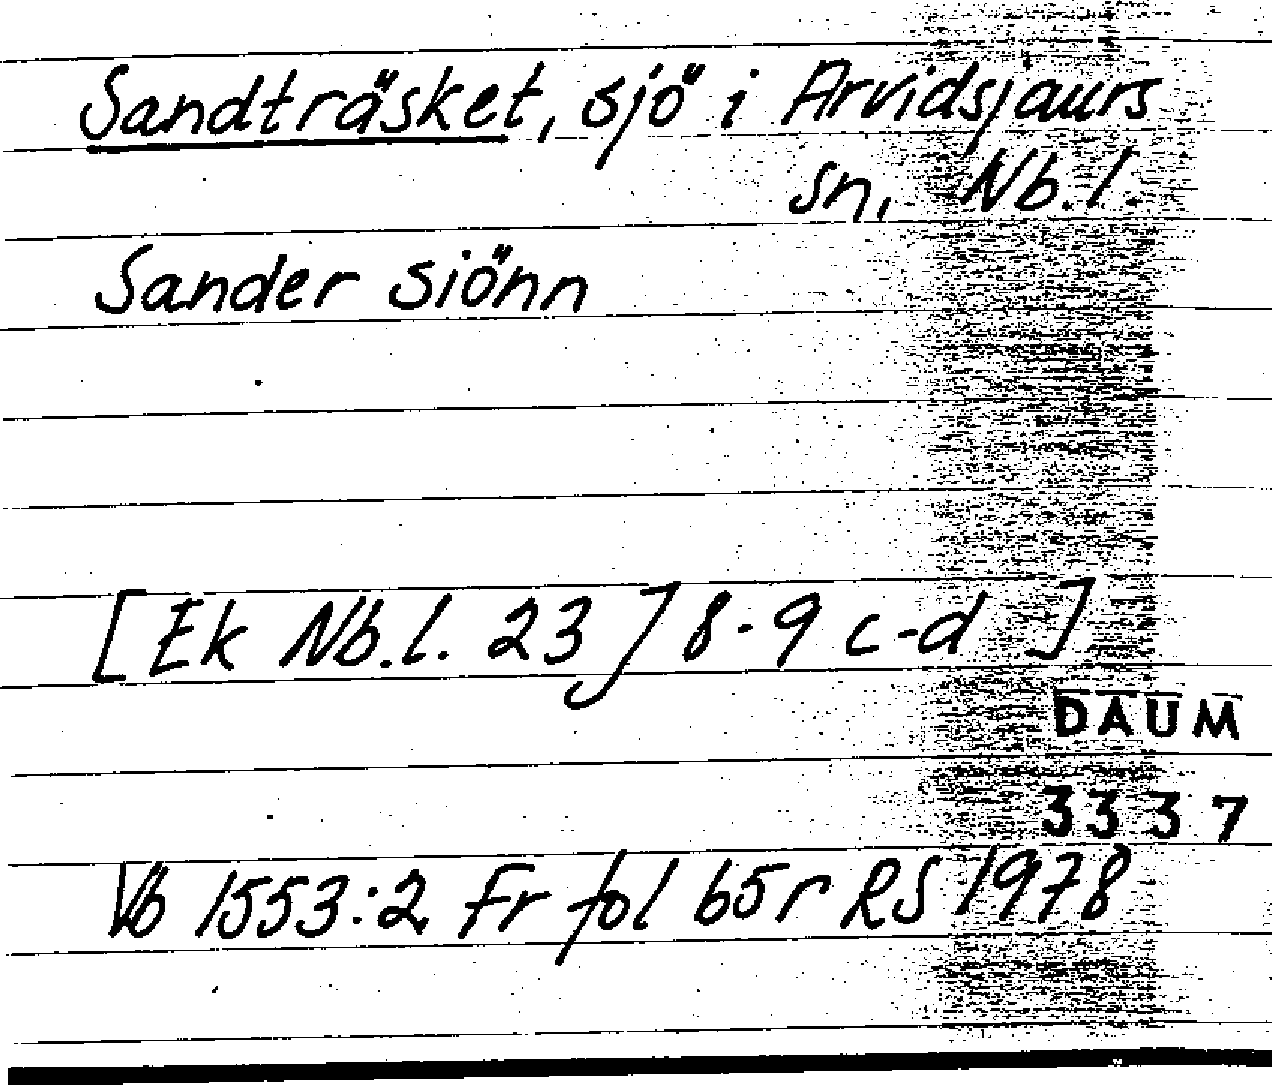 Sandträsket, sjö i Arvidsjaurs
sn, Nb.l.
Sander siönn
[Ek Nb.l. 23 J 8-9 c-d ]
DAUM
3337
Vb 1553:2 Fr fol 65r RS 1978